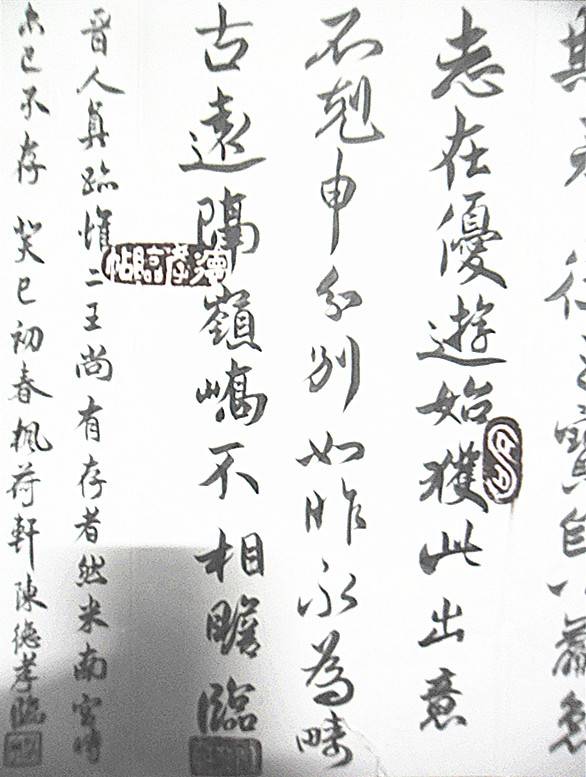 期羣從之寶自以羸患
志在優遊始獲此出意
不剋申分別如昨永為疇
古遠隔嶺嶠不相瞻臨
晉人真跡惟二王尚有存者然米南宮時
亦已不存 癸巳初春楓荷軒陳德孝臨
德孝臨帖